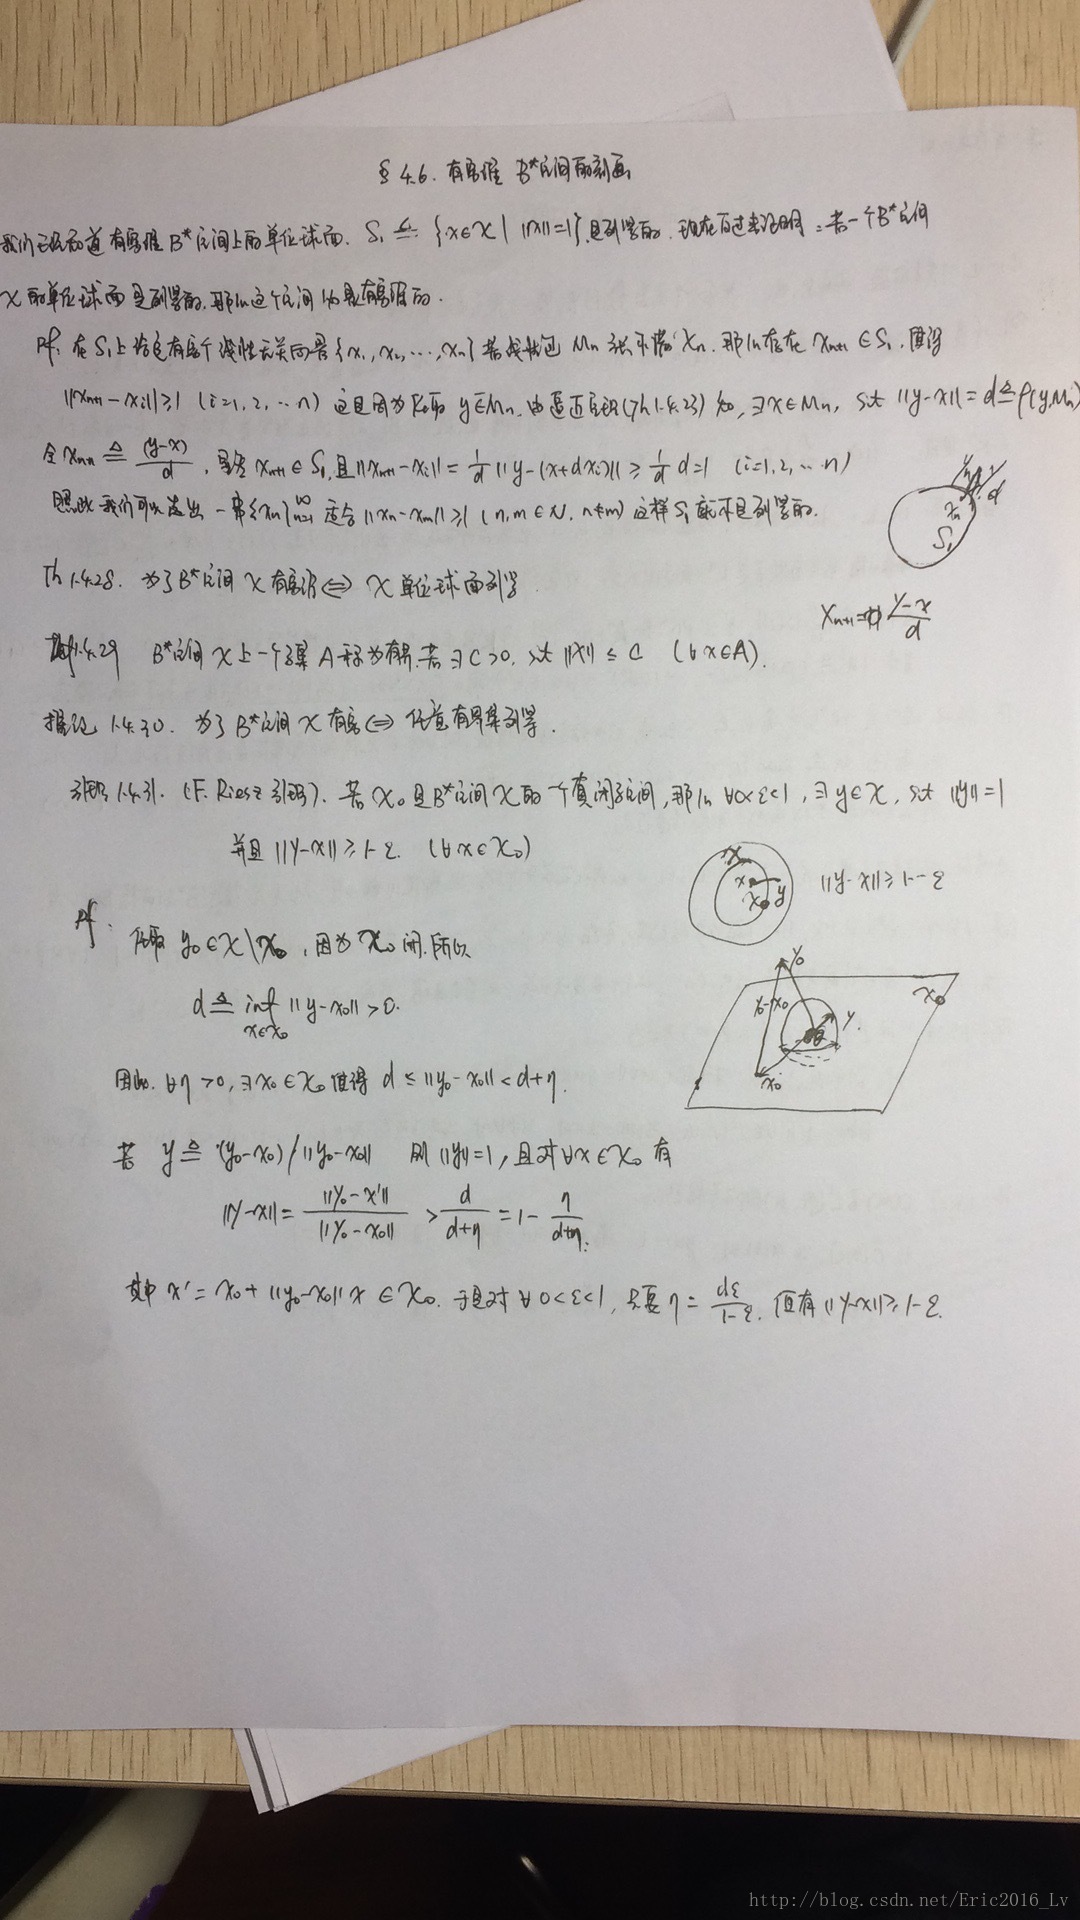 §4.6. 有穷维 B*空间的刻画
我们已经知道有穷维B*空间上的单位球面. S₁ ≜ {x∈X | ||x||=1}是列紧的. 现在反过来证明: 若一个B*空间
X的单位球面是列紧的, 那么这个空间必是有穷维的.
Pf. 在S₁上给定有穷个线性无关向量{x₁, x₂, ..., xₙ} 若线性包 Mₙ 张不满 Xₙ. 那么存在 xₙ₊₁ ∈ S₁, 使得
||xₙ₊₁ - xᵢ|| ≥ 1 (i=1, 2, ... n) 这是因为任取 y∉Mₙ, 由逼近定理(Th 1.4.23) 知, ∃x∈Mₙ, s.t ||y-x|| = d ≜ ρ(y, Mₙ)
令 xₙ₊₁ ≜ (y-x)/d, 显然 xₙ₊₁ ∈ S₁, 且 ||xₙ₊₁ - xᵢ|| = 1/d ||y-(x+dxᵢ)|| ≥ 1/d d = 1 (i=1, 2, ... n)
照此我们可以造出一串{xₙ}ₙ₌₁^∞ 适合 ||xₙ-xₘ|| ≥ 1 (n, m ∈ N, n≠m) 这样 S₁ 就不是列紧的.
xₙ y d
S₁
Th 1.4.28. 为了B*空间 X 有穷维 ⇔ X 单位球面列紧
xₙ₊₁ = (y-x)/d
Def 1.4.29 B*空间 X 上一个子集 A 称为有界, 若 ∃C>0, s.t ||x|| ≤ C (∀x∈A).
推论 1.4.30. 为了B*空间 X 有穷 ⇔ 任意有界集列紧.
引理1.4.31. (F. Riesz 引理). 若 X₀ 是B*空间 X 的一个真闭子空间, 那么 ∀0<ε<1, ∃y∈X, s.t ||y||=1
并且 ||y-x|| ≥ 1-ε. (∀x∈X₀)
X x y X₀ ||y-x|| ≥ 1-ε
Pf.
任取 y₀ ∈ X\X₀, 因为 X₀ 闭, 所以
d ≜ inf_{x∈X₀} ||y-x₀|| > 0.
y₀ y₀-x₀ y x₀ X₀
因此. ∀η>0, ∃x₀∈X₀ 使得 d ≤ ||y₀-x₀|| < d+η.
若 y ≜ (y₀-x₀)/||y₀-x₀|| 则 ||y||=1, 且对∀x∈X₀ 有
||y-x|| = ||y₀-x'|| / ||y₀-x₀|| > d/(d+η) = 1 - η/(d+η).
其中 x' = x₀ + ||y₀-x₀||x ∈ X₀. 于是对 ∀0<ε<1, 只要 η = dε/(1-ε). 便有 ||y-x|| ≥ 1-ε.
http://blog.csdn.net/Eric2016_Lv